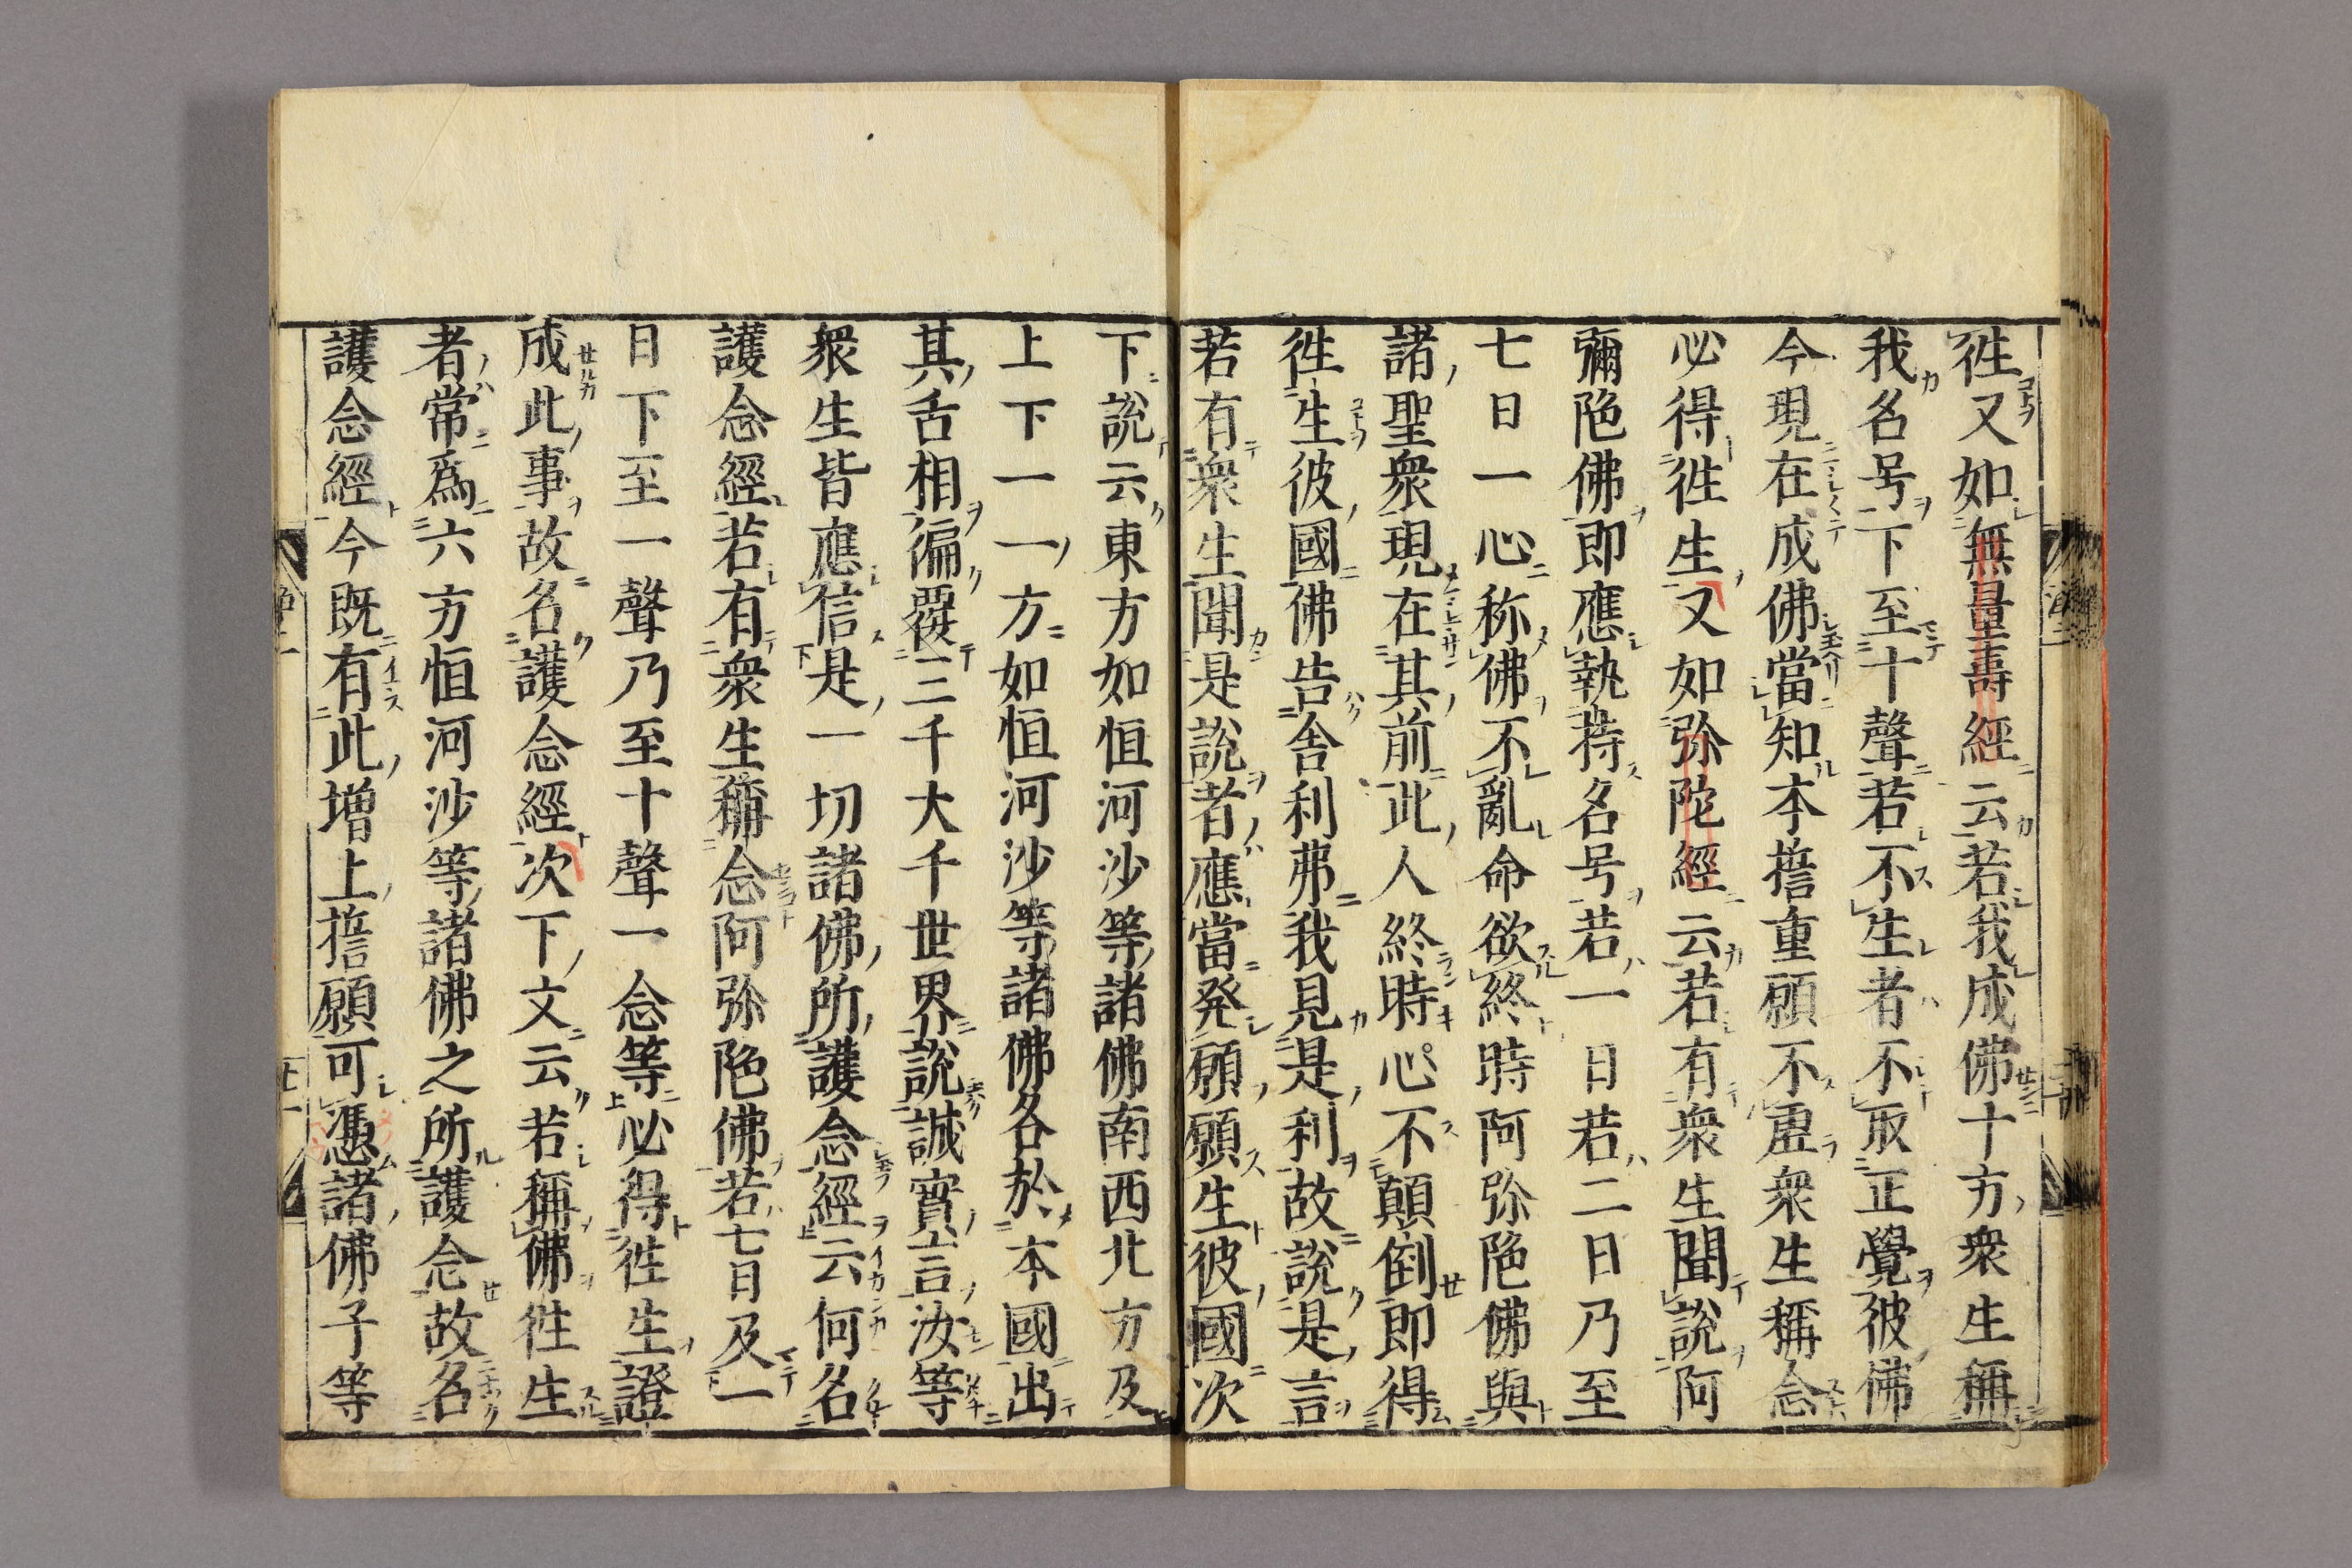 徃又如無量壽經云若我成佛十方衆生稱
我名号下至十聲若不生者不取正覺彼佛
今現在成佛當知本誓重願不虛衆生稱念
必得徃生又如弥陀經云若有衆生聞說阿
彌陁佛即應執持名号若一日若二日乃至
七日一心称佛不亂命欲終時阿弥陁佛與
諸聖衆現在其前此人終時心不顛倒即得
徃生彼國佛告舎利弗我見是利故說是言
若有衆生聞是說者應當発願願生彼國次
下說云東方如恒河沙等諸佛南西北方及
上下一一方如恒河沙等諸佛各於本國出
其舌相徧覆三千大千世界說誠實言汝等
衆生皆應信是一切諸佛所護念經云何名
護念經若有衆生稱念阿弥陁佛若七日及一
日下至一聲乃至十聲一念等必得徃生證
成此事故名護念經次下文云若稱佛徃生
者常爲六方恒河沙等諸佛之所護念故名
護念經今既有此増上誓願可憑諸佛子等